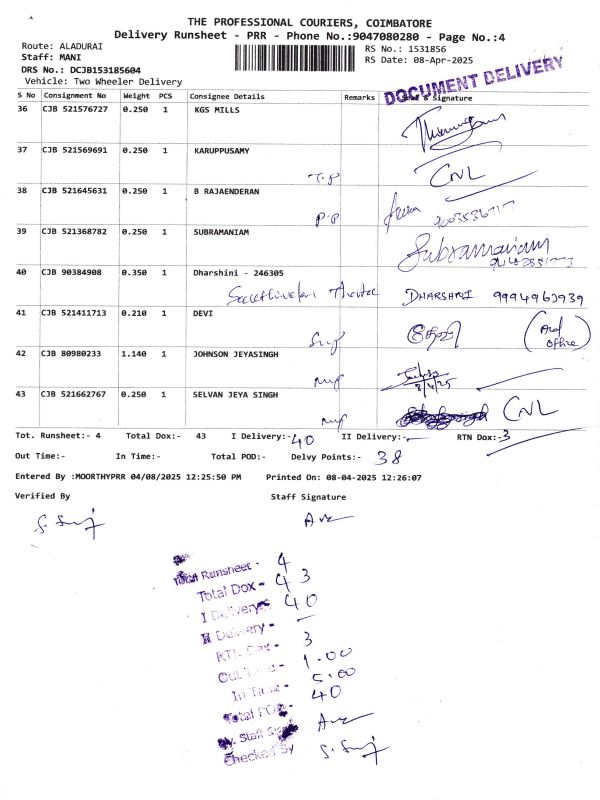 THE PROFESSIONAL COURIERS, COIMBATORE
Delivery Runsheet - PRR - Phone No.:9047080280 - Page No.:4
Route: ALADURAI
RS No.: 1531856
Staff: MANI
RS Date: 08-Apr-2025
DRS No.: DCJB153185604
Vehicle: Two Wheeler Delivery
DOCUMENT DELIVERY
S No Consignment No Weight PCS Consignee Details Remarks & Signature
36 CJB 521576727 0.250 1 KGS MILLS
37 CJB 521569691 0.250 1 KARUPPUSAMY
T.P CNL
38 CJB 521645631 0.250 1 B RAJAENDERAN
P.P
39 CJB 521368782 0.250 1 SUBRAMANIAM
Subramaniam
40 CJB 90384908 0.350 1 Dharshini - 246305
DHARSHRI 9994963939
41 CJB 521411713 0.210 1 DEVI
தேவி
office
42 CJB 80980233 1.140 1 JOHNSON JEYASINGH
8/4/25
43 CJB 521662767 0.250 1 SELVAN JEYA SINGH
CNL
Tot. Runsheet:- 4 Total Dox:- 43 I Delivery:- 40 II Delivery:- - RTN Dox:- 3
Out Time:- In Time:- Total POD:- Delvy Points:- 38
Entered By :MOORTHYPRR 04/08/2025 12:25:50 PM Printed On: 08-04-2025 12:26:07
Verified By Staff Signature
Total Runsheet - 4
Total Dox - 43
I Delivery - 40
II Delivery - -
RTN Dox - 3
Out Time - 1.00
In Time - 5.00
Total POD - 40
Staff
Checked By